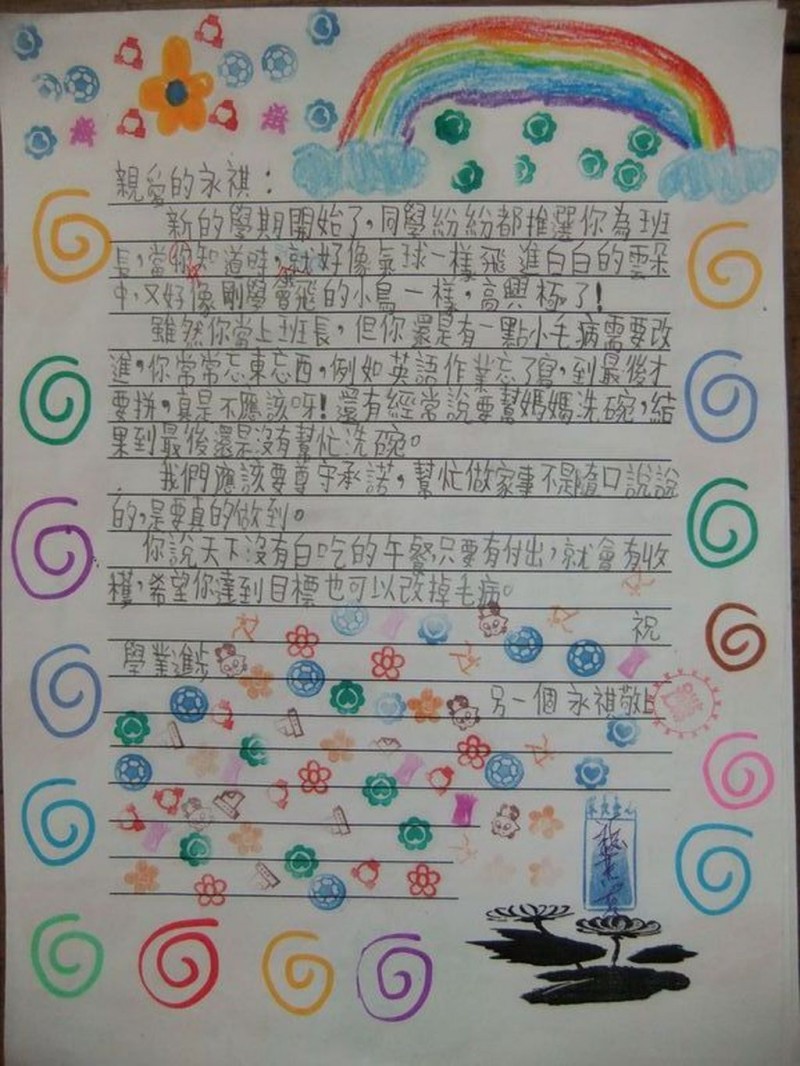 親愛的永祺：
新的學期開始了，同學紛紛都推選你為班
長，當你知道時，就好像氣球一樣飛進白白的雲朵
中，又好像剛學會飛的小鳥一樣，高興極了！
雖然你當上班長，但你還是有一點小毛病需要改
進，你常常忘東忘西，例如英語作業忘了寫，到最後才
要拼，真是不應該呀！還有經常說要幫媽媽洗碗，結
果到最後還是沒有幫忙洗碗。
我們應該要尊守承諾，幫忙做家事不是隨口說說
的，是要真的做到。
你說天下沒有白吃的午餐只要有付出，就會有收
穫，希望你達到目標也可以改掉毛病。
祝
學業進步
另一個永祺敬上